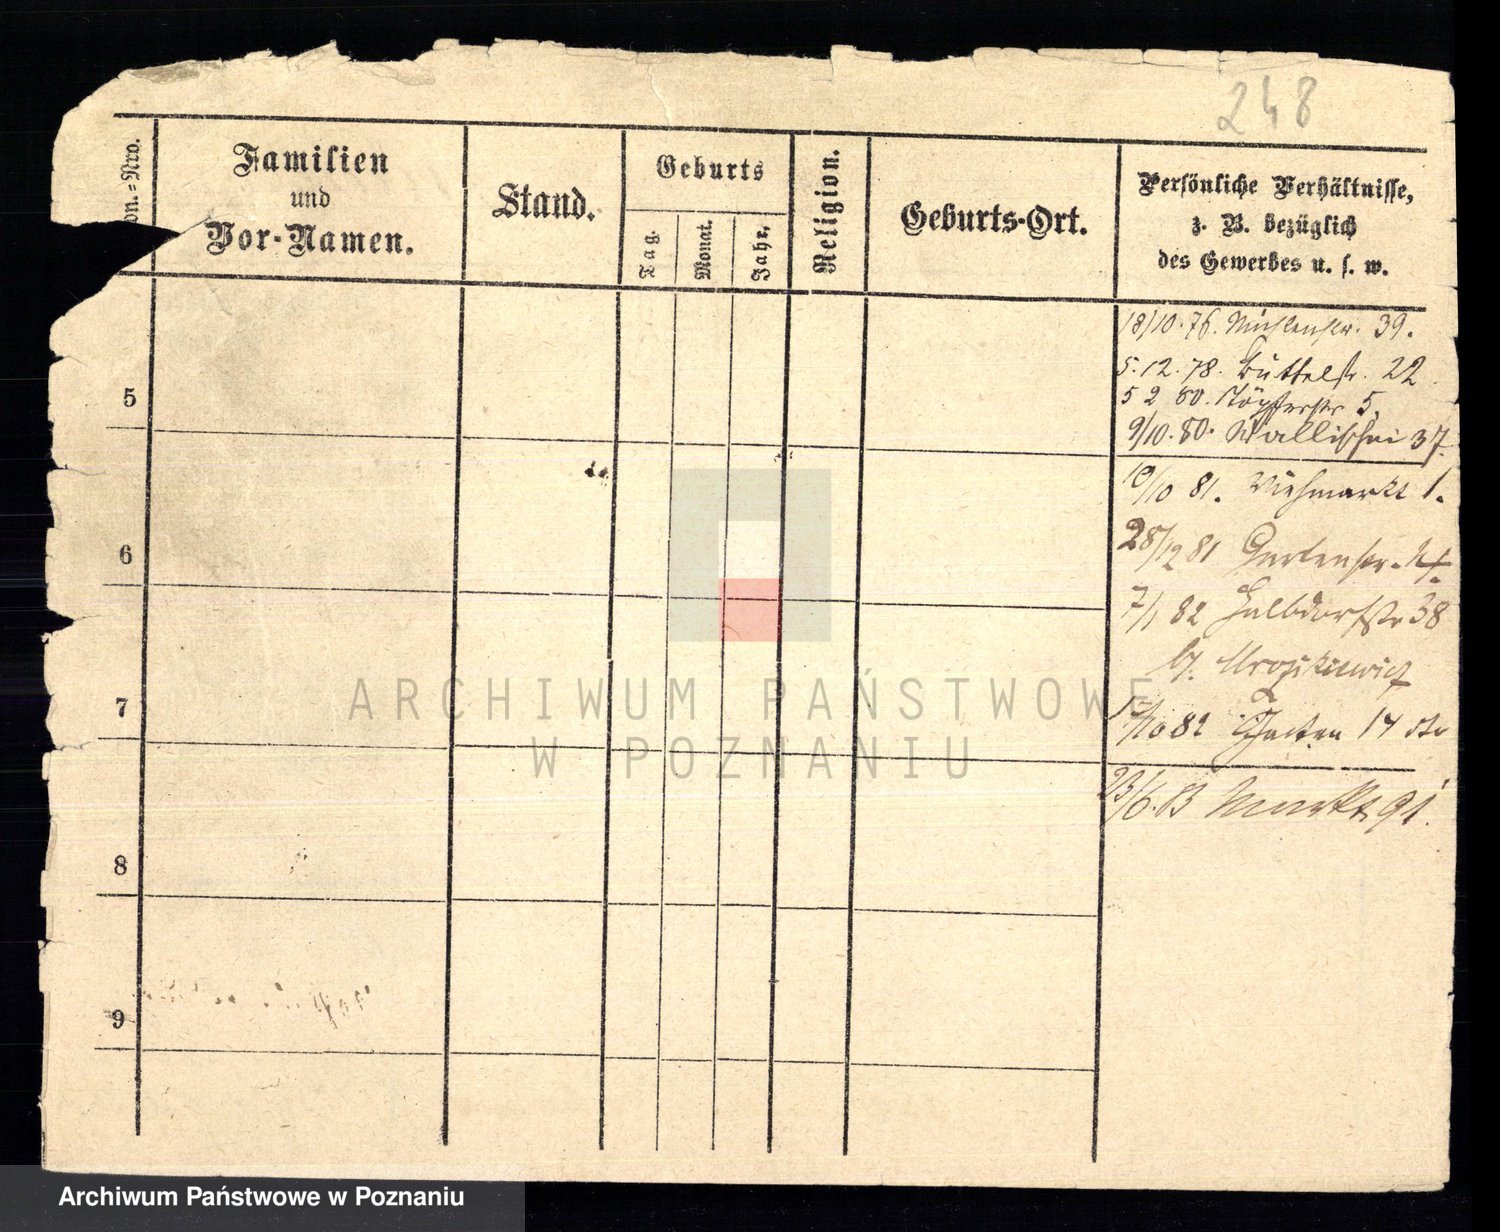 248
on.-Nro.
Familien
und
Vor-Namen.
Stand.
Geburts
Tag.
Monat.
Jahr.
Religion.
Geburts-Ort.
Persönliche Verhältnisse,
z. B. bezüglich
des Gewerbes u. s. w.
18/10.76. Mühlenstr. 39.
5.12.78. Büttelstr. 22
5 2 80. Töpferstr 5.
9/10.80. Wallischei 37.
5
10/10 81. Viehmarkt 1.
28/12 81 Gartenstr.
6
7/1 82 Halbdorfstr 38
b/.
7
/10 82 14
23/6.83 Markt 91.
8
9
ARCHIWUM PAŃSTWOWE
W POZNANIU
Archiwum Państwowe w Poznaniu